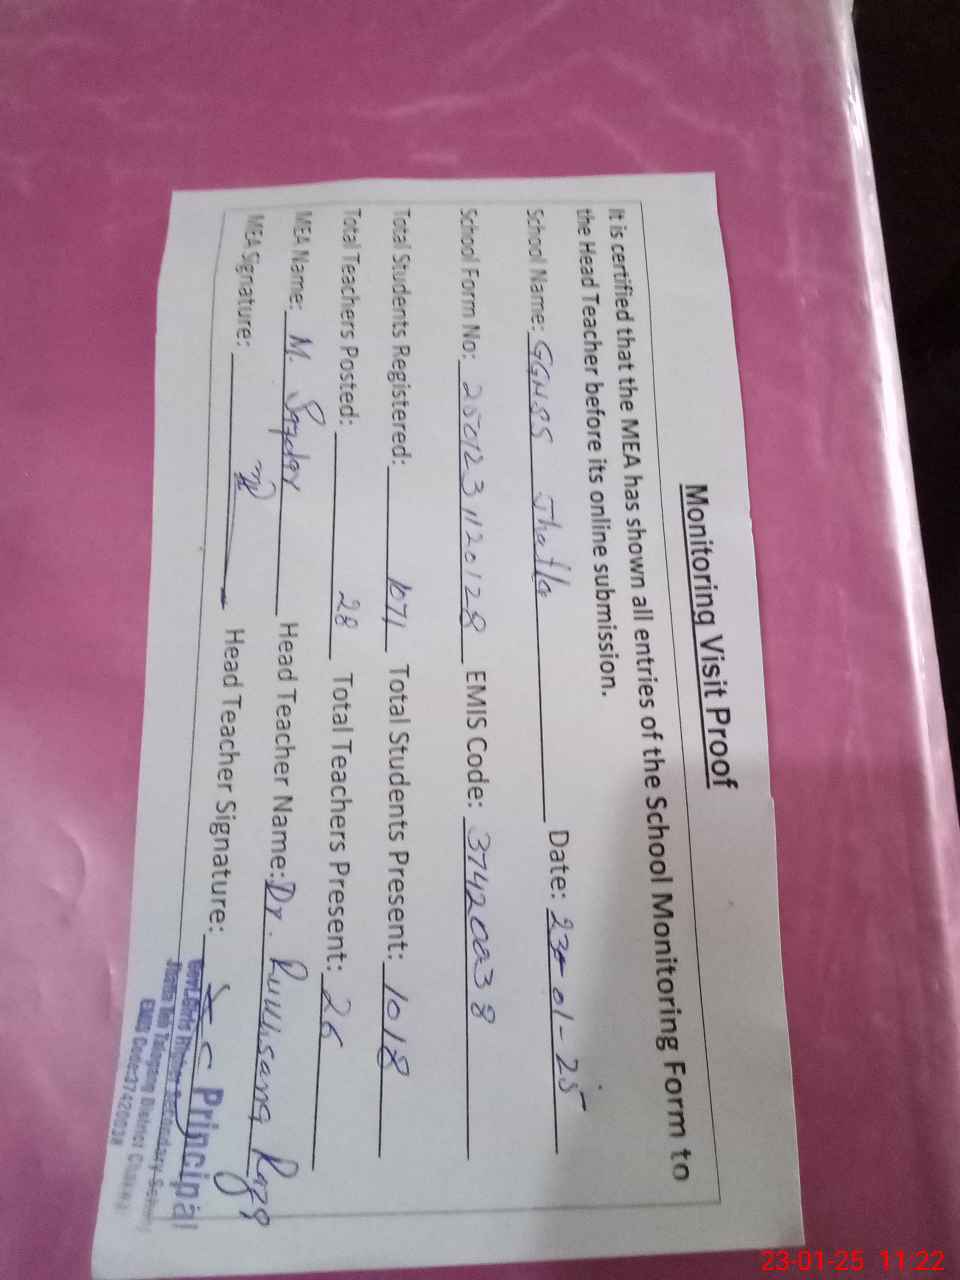 Monitoring Visit Proof
It is certified that the MEA has shown all entries of the School Monitoring Form to
the Head Teacher before its online submission.
School Name: GGHSS Jhatla Date: 23-01-25
School Form No: 2501231120128 EMIS Code: 37420038
Total Students Registered: 1071 Total Students Present: 1018
Total Teachers Posted: 28 Total Teachers Present: 26
MEA Name: M. Head Teacher Name: Dr.
MEA Signature: Head Teacher Signature:
Principal
Govt.Girls Higher Secondary School
Jhatla Teh Talagang District Chakwal
EMIS Code:37420038
23-01-25 11:22